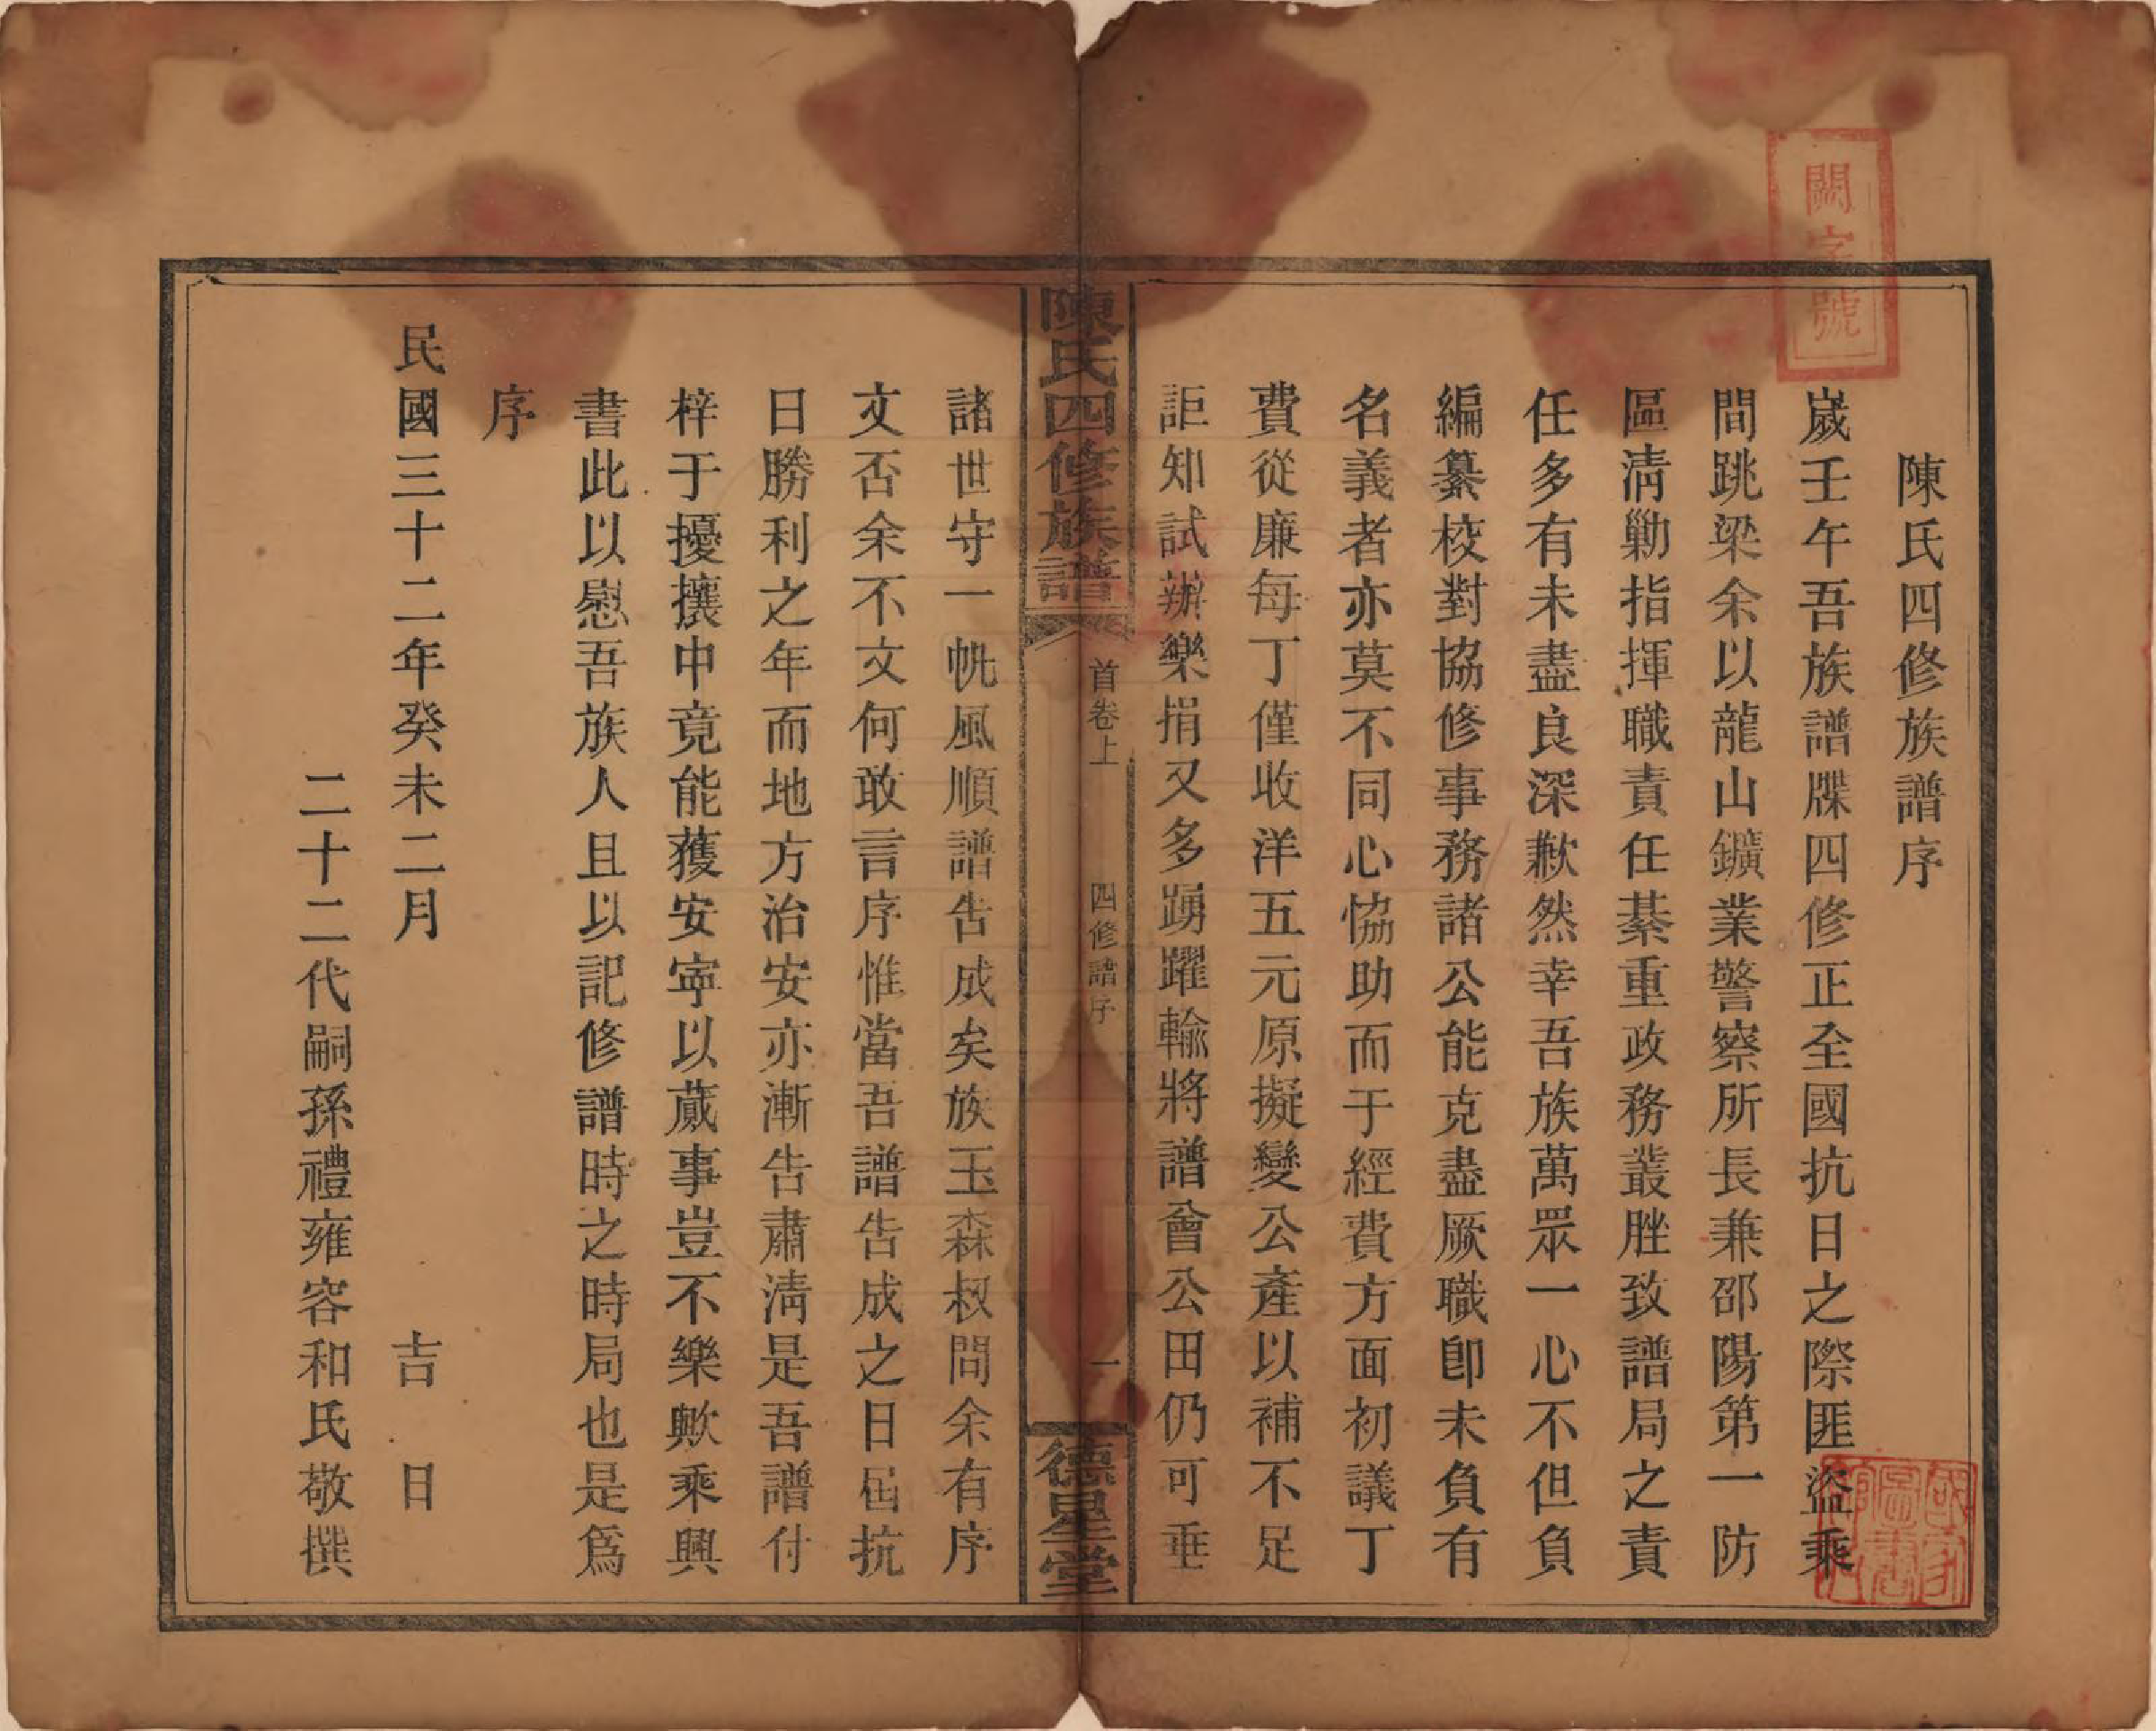 陳氏四修族譜序
歲壬午吾族譜牒四修正全國抗日之際匪盜乘
間跳梁余以龍山鑛業警察所長兼邵陽第一防
區淸勦指揮職責任綦重政務叢脞致譜局之責
任多有未盡良深歉然幸吾族萬眾一心不但負
編纂校對協修事務諸公能克盡厥職卽未負有
名義者亦莫不同心恊助而于經費方面初議丁
費從廉每丁僅收洋五元原擬變公產以補不足
詎知試辦樂捐又多踴躍輸將譜會公田仍可垂
陳氏四修族譜
首卷上
四修譜序
一
德星堂
諸世守一帆風順譜告成矣族玉森叔問余有序
文否余不文何敢言序惟當吾譜告成之日屆抗
日勝利之年而地方治安亦漸告肅淸是吾譜付
梓于擾攘中竟能獲安寍以蕆事豈不樂歟乘興
書此以慰吾族人且以記修譜時之時局也是爲
序
民國三十二年癸未二月 吉日
二十二代嗣孫禮雍容和氏敬撰
闕字號
國家圖書館